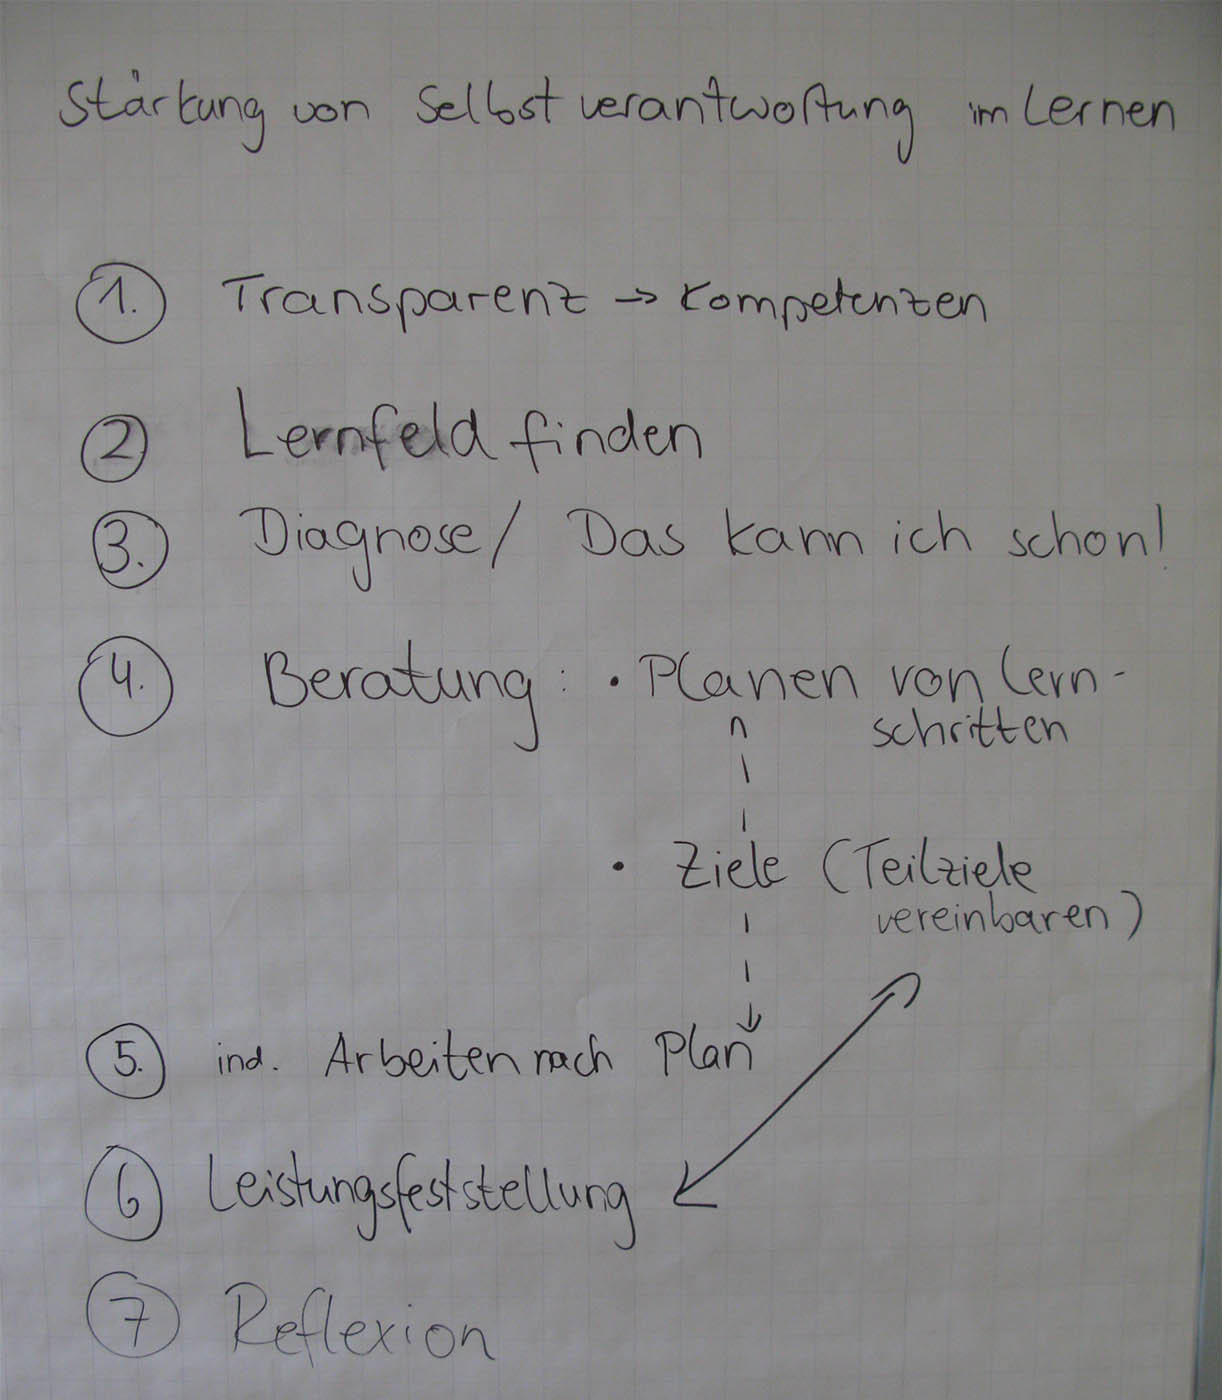 Stärkung von Selbstverantwortung im Lernen
1. Transparenz → Kompetenzen
2 Lernfeld finden
3. Diagnose / Das kann ich schon!
4. Beratung: • Planen von Lern-
schritten
• Ziele (Teilziele
vereinbaren)
5. ind. Arbeiten nach Plan
6 Leistungsfeststellung
7 Reflexion